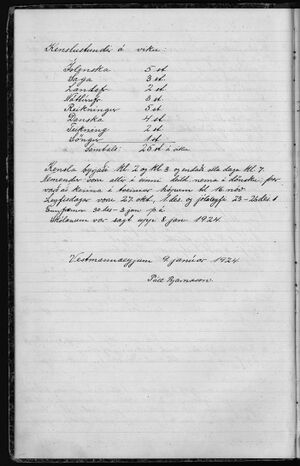 Kenslustundir á viku:
Íslenska 5 st.
Saga 3 st.
Landafr. 2 st
Náttúrufr. 3 st.
Reikningur 5 st
Danska 4 st
Teikning 2 st
Söngur 1 st
Samtals 25 st á viku
Kensla byrjaði kl. 2 og kl. 3 og endaði alla daga kl. 7.
Nemendur voru allir í einni deild nema í dönsku, þar
varð að kenna í tveimur til 16 nóv.
Leyfisdagar voru 27. okt, 1. des og jólaleyfi 23-26 des &
des - 3 jan
Skólanum var sagt upp 8 jan 1924.
Vestmannaeyjum 9 janúar 1924
Páll Bjarnason.